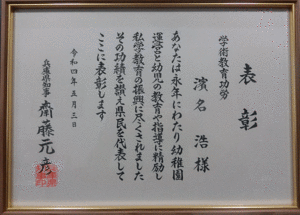 表彰
学術教育功労
濱名 浩 様
あなたは永年にわたり幼稚園
運営と幼児の教育や指導に精励し
私学教育の振興に尽くされました
その功績を讃え県民を代表して
ここに表彰します
令和四年五月三日
兵庫県知事 齋藤元彦